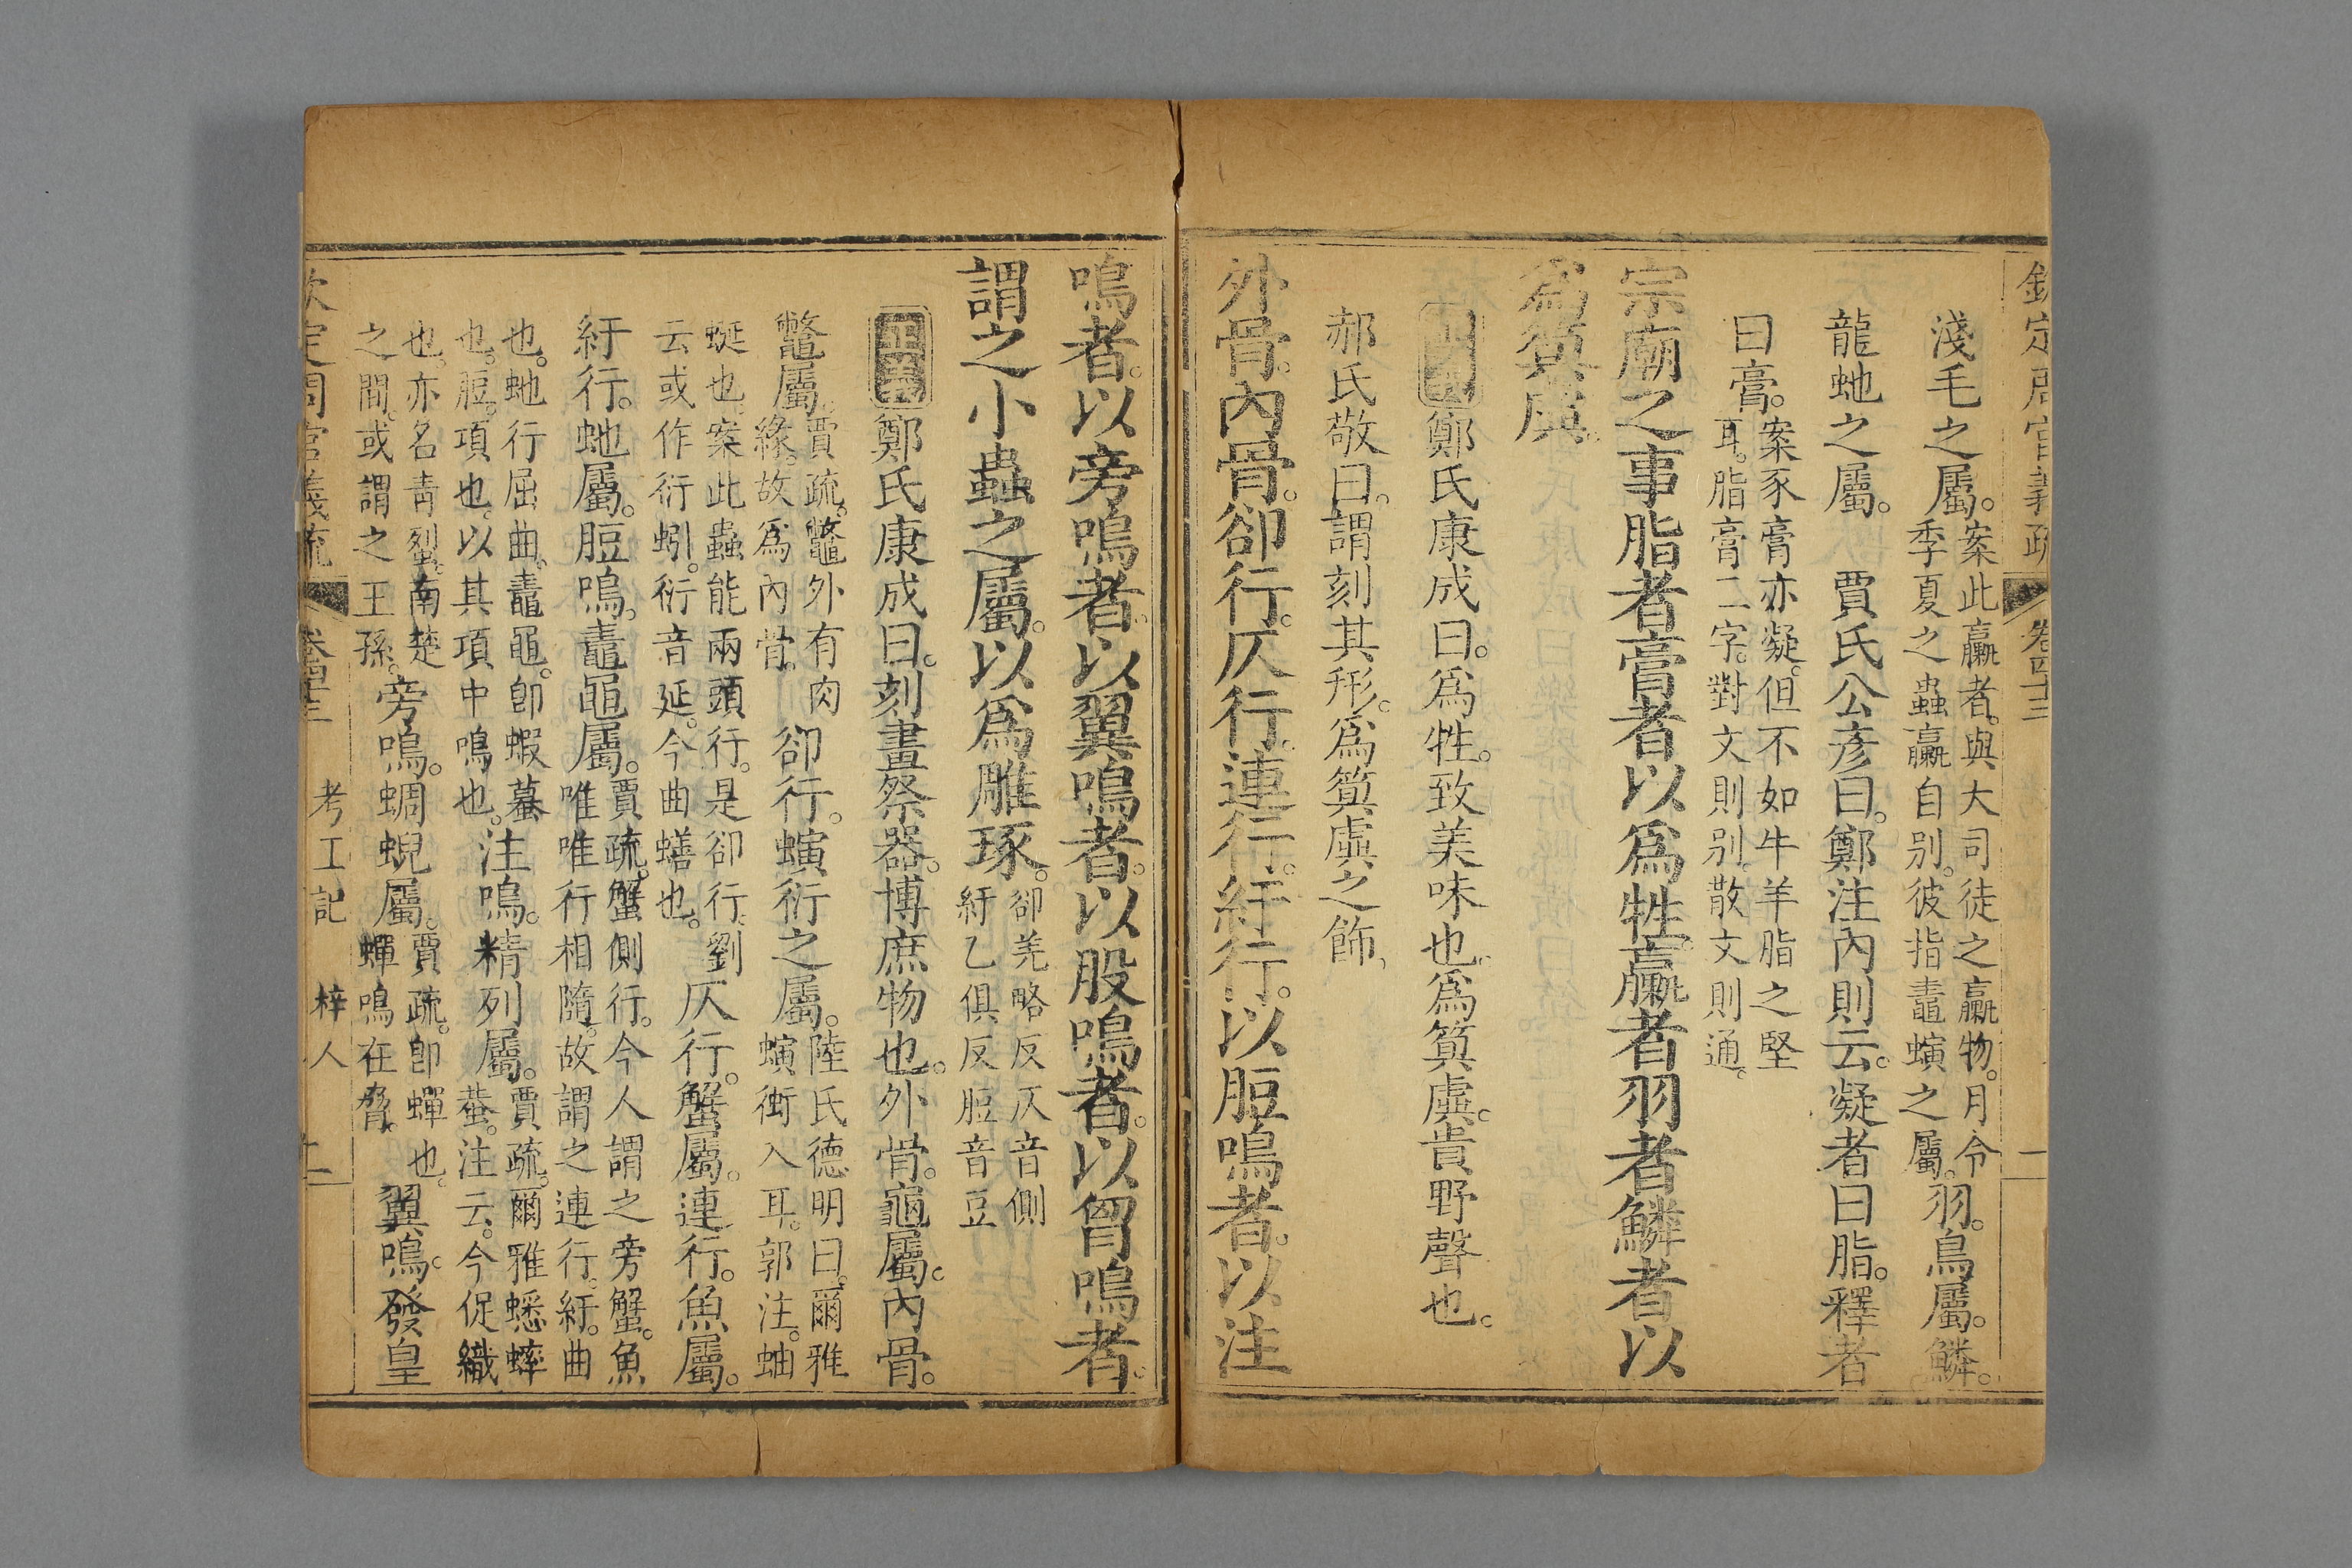 欽定周官義疏 卷四十三 一
淺毛之屬。案此臝者。與大司徒之臝物。月令
季夏之蟲臝自别。彼指鼃螾之屬。羽。鳥屬。鱗。
龍虵之屬。 賈氏公彦曰。鄭注內則云。凝者曰脂。釋者
曰膏。案豕膏亦凝。但不如牛羊脂之堅
耳。脂膏二字。對文則别。散文則通。
宗廟之事脂者膏者以爲牲。臝者羽者鱗者以
爲筍虡。
正義 鄭氏康成曰。爲牲。致美味也。爲筍虡。貴野聲也。
郝氏敬曰。謂刻其形。爲筍虡之飾。
外骨。內骨。卻行。仄行。連行。紆行。以脰鳴者。以注
鳴者。以旁鳴者。以翼鳴者。以股鳴者。以胷鳴者。
謂之小蟲之屬。以爲雕琢。卻羌略反仄音側
紆乙俱反脰音豆
正義 鄭氏康成曰。刻畫祭器。博庶物也。外骨。龜屬。內骨。
鼈屬。賈疏。鼈外有肉
緣。故爲內骨。 卻行。螾衍之屬。陸氏德明曰。爾雅
螾衝入耳。郭注。蚰
蜒也。案此蟲能兩頭行。是卻行。劉
云或作衍蚓。衍音延。今曲蟮也。 仄行。蟹屬。連行。魚屬。
紆行。虵屬。脰鳴。鼃黽屬。賈疏。蟹側行。今人謂之旁蟹。魚
唯唯行相隨。故謂之連行。紆。曲
也。虵行屈曲。鼃黽。卽蝦蟇
也。脰。項也。以其項中鳴也。 注鳴。精列屬。賈疏。爾雅蟋蟀
蛬。注云。今促織
也。亦名靑𧊿。南楚
之間。或謂之王孫。 旁鳴。蜩蜺屬。賈疏。卽蟬也。
蟬鳴在脅。 翼鳴。發皇
欽定周官義疏 卷四十三 考工記 梓人 二